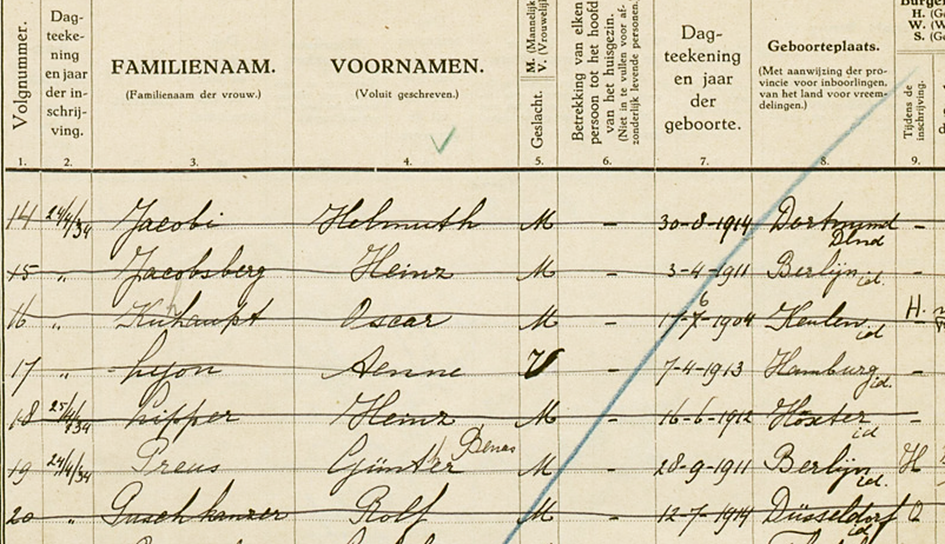 Volgnummer. Dag-teeke-ning en jaar der in-schrij-ving. FAMILIENAAM. (Familienaam der vrouw.) VOORNAMEN. (Voluit geschreven.) Geslacht. M. (Mannelijk V. (Vrouwelijk Betrekking van elken persoon tot het hoofd van het huisgezin. (Niet in te vullen voor af-zonderlijk levende personen. Dag-teekening en jaar der geboorte. Geboorteplaats. (Met aanwijzing der pro-vincie voor inboorlingen, van het land voor vreem-delingen.) H. (Ge W. (W S. (Ge Tijdens de inschrijving.
1. 2. 3. 4. 5. 6. 7. 8. 9.
14 24/4/34 Jacobi Helmuth M - 30-8-1914 Dortmund Dlnd -
15 " Jacobsberg Heinz M - 3-4-1911 Berlijn id. -
16 " Kuhaupt Oscar M - 17-7-1904 6 Keulen id H.
17 " Lyon Aenne V - 7-4-1913 Hamburg id. -
18 25/4/34 Lipper Heinz M - 16-6-1912 Höxter id -
19 24/4/34 Preus Günter Benas M - 28-9-1911 Berlijn id. H
20 " Rolf M - 12-7-1914 Düsseldorf id O